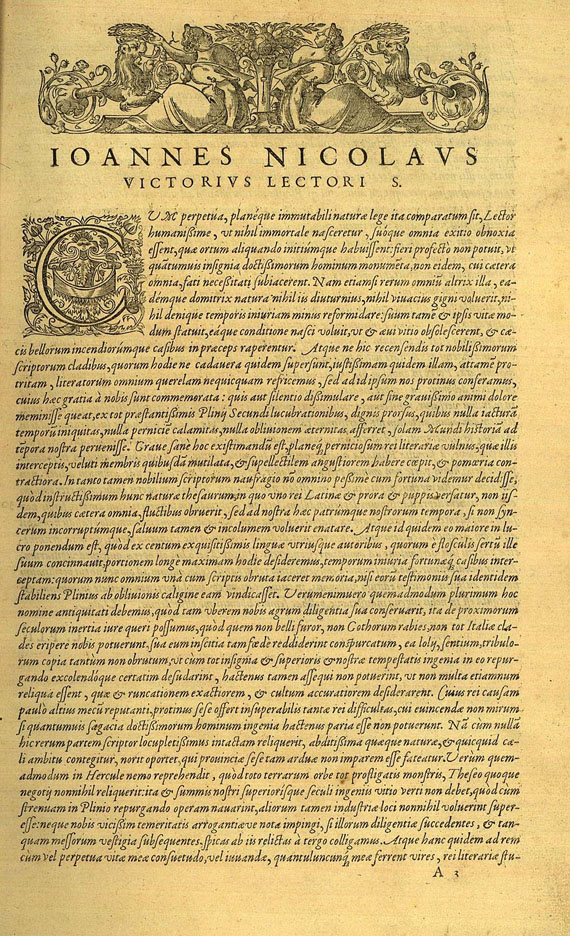 IOANNES NICOLAVS
VICTORIVS LECTORI S.
CVM perpetua, planéque immutabili naturæ lege ita comparatum sit, Lector
humanissime, vt nihil immortale nasceretur, suóque omnia exitio obnoxia
essent, quæ ortum aliquando initiumque habuissent: fieri profecto non potuit, vt
quātumuis insignia doctissimorum hominum monumēta, non eidem, cui cætera
omnia, fati necessitati subiacerent. Nam etiamsi rerum omniū altrix illa, ea-
démque domitrix natura nihil iis diuturnius, nihil viuacius gigni voluerit, ni-
hil denique temporis iniuriam minus reformidare: suum tamē & ipsis vitæ mo-
dum statuit, eáque conditione nasci voluit, vt & æui vitio obsolescerent, & cæ-
cis bellorum incendiorúmque casibus in præceps raperentur. Atque ne hic recensendis tot nobilissimorum
scriptorum cladibus, quorum hodie ne cadauera quidem supersunt, iustissimam quidem illam, attamē pro-
tritam, literatorum omnium querelam nequicquam refricemus, sed ad id ipsum nos protinus conferamus,
cuius hæc gratia à nobis sunt commemorata: quis aut silentio dissimulare, aut sine grauissimo animi dolore
meminisse queat, ex tot præstantissimis Plinij Secundi lucubrationibus, dignis prorsus, quibus nulla iacturā
temporū iniquitas, nulla perniciē calamitas, nulla obliuionem æternitas afferret, solam Mundi historiā ad
tēpora nostra peruenisse. Graue sane hoc existimandū est, planeq́; perniciosum rei literariæ vulnus, quæ illis
interceptis, veluti membris quibusdā mutilata, & supellectilem angustiorem habere cœpit, & pomœria con-
tractiora. In tanto tamen nobilium scriptorum naufragio no omnino pessime cum fortuna videmur decidisse,
quòd instructissimum hunc naturæ thesaurum, in quo vno rei Latinæ & prora & puppis versatur, non iis-
dem, quibus cætera omnia, fluctibus obruerit, sed ad nostra hæc patrúmque nostrorum tempora, si non syn-
cerum incorruptúmque, saluum tamen & incolumem voluerit enatare. Atque id quidem eo maiore in lu-
cro ponendum est, quòd ex centum exquisitissimis linguæ vtriusque autoribus, quorum è flosculis sertū ille
suum concinnauit, portionem longe maximam hodie desideremus, temporum iniuria fortunæq́; casibus inter-
ceptam: quorum nunc omnium vnà cum scriptis obruta taceret memoria, nisi eorū testimoniis sua identidem
stabiliens Plinius ab obliuionis caligine eam vindicasset. Verumenimuero quemadmodum plurimum hoc
nomine antiquitati debemus, quòd tam vberem nobis agrum diligentia sua conseruauit, ita de proximorum
seculorum inertia iure queri possumus, quòd quem non belli furor, non Gothorum rabies, non tot Italiæ cla-
des eripere nobis potuerunt, sua eum inscitia tam fœdè reddiderint conspurcatum, ea lolij, sentium, tribulo-
rum copia tantùm non obrutum, vt cùm tot insignia & superioris & nostræ tempestatis ingenia in eo repur-
gando excolendóque certatim desudarint, hactenus tamen assequi non potuerint, vt non multa etiamnum
reliqua essent, quæ & runcationem exactiorem, & cultum accuratiorem desiderarent. Cuius rei causam
paulò altius mecū reputanti, protinus sese offert insuperabilis tantæ rei difficultas, cui euincendæ non mirum
si quantumuis sagacia doctissimorum hominum ingenia hactenus paria esse non potuerunt. Nā cum nullā
hic rerum partem scriptor locupletissimus intactam reliquerit, abditissima quæque naturæ, & quicquid cæ-
li ambitu contegitur, norit oportet, qui prouinciæ sese tam arduæ non imparem esse fateatur. Verùm quem-
admodum in Hercule nemo reprehendit, quòd toto terrarum orbe tot profligatis monstris, Theseo quoque
negotij nonnihil reliquerit: ita & summis nostri superiorísque seculi ingeniis vitio verti non debet, quòd cùm
strenuam in Plinio repurgando operam nauarint, aliorum tamen industriæ loci nonnihil voluerint super-
esse: neque nobis vicissim temeritatis arrogantiæve nota impingi, si illorum diligentiæ succedentes, & tan-
quam messorum vestigia subsequentes, spicas ab iis relictas à tergo colligamus. Atque hanc quidem ad rem
cùm vel perpetua vitæ meæ consuetudo, vel iuuandæ, quantuluncunq́; meæ ferrent vires, rei literariæ stu-
A 3